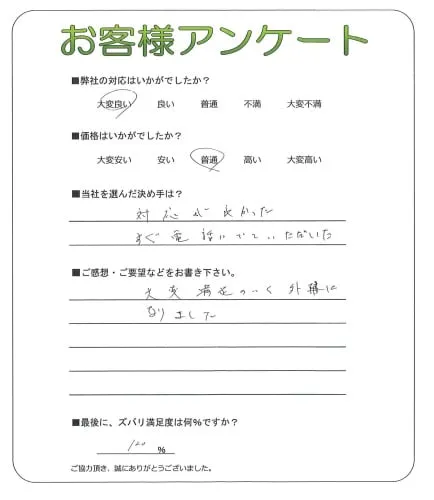 お客様アンケート
■弊社の対応はいかがでしたか?
大変良い 良い 普通 不満 大変不満
■価格はいかがでしたか?
大変安い 安い 普通 高い 大変高い
■当社を選んだ決め手は?
対応が良かった
すぐ電話にでていただいた
■ご感想・ご要望などをお書き下さい。
大変満足のいく外構に
なりました
■最後に、ズバリ満足度は何%ですか?
120 %
ご協力頂き、誠にありがとうございました。